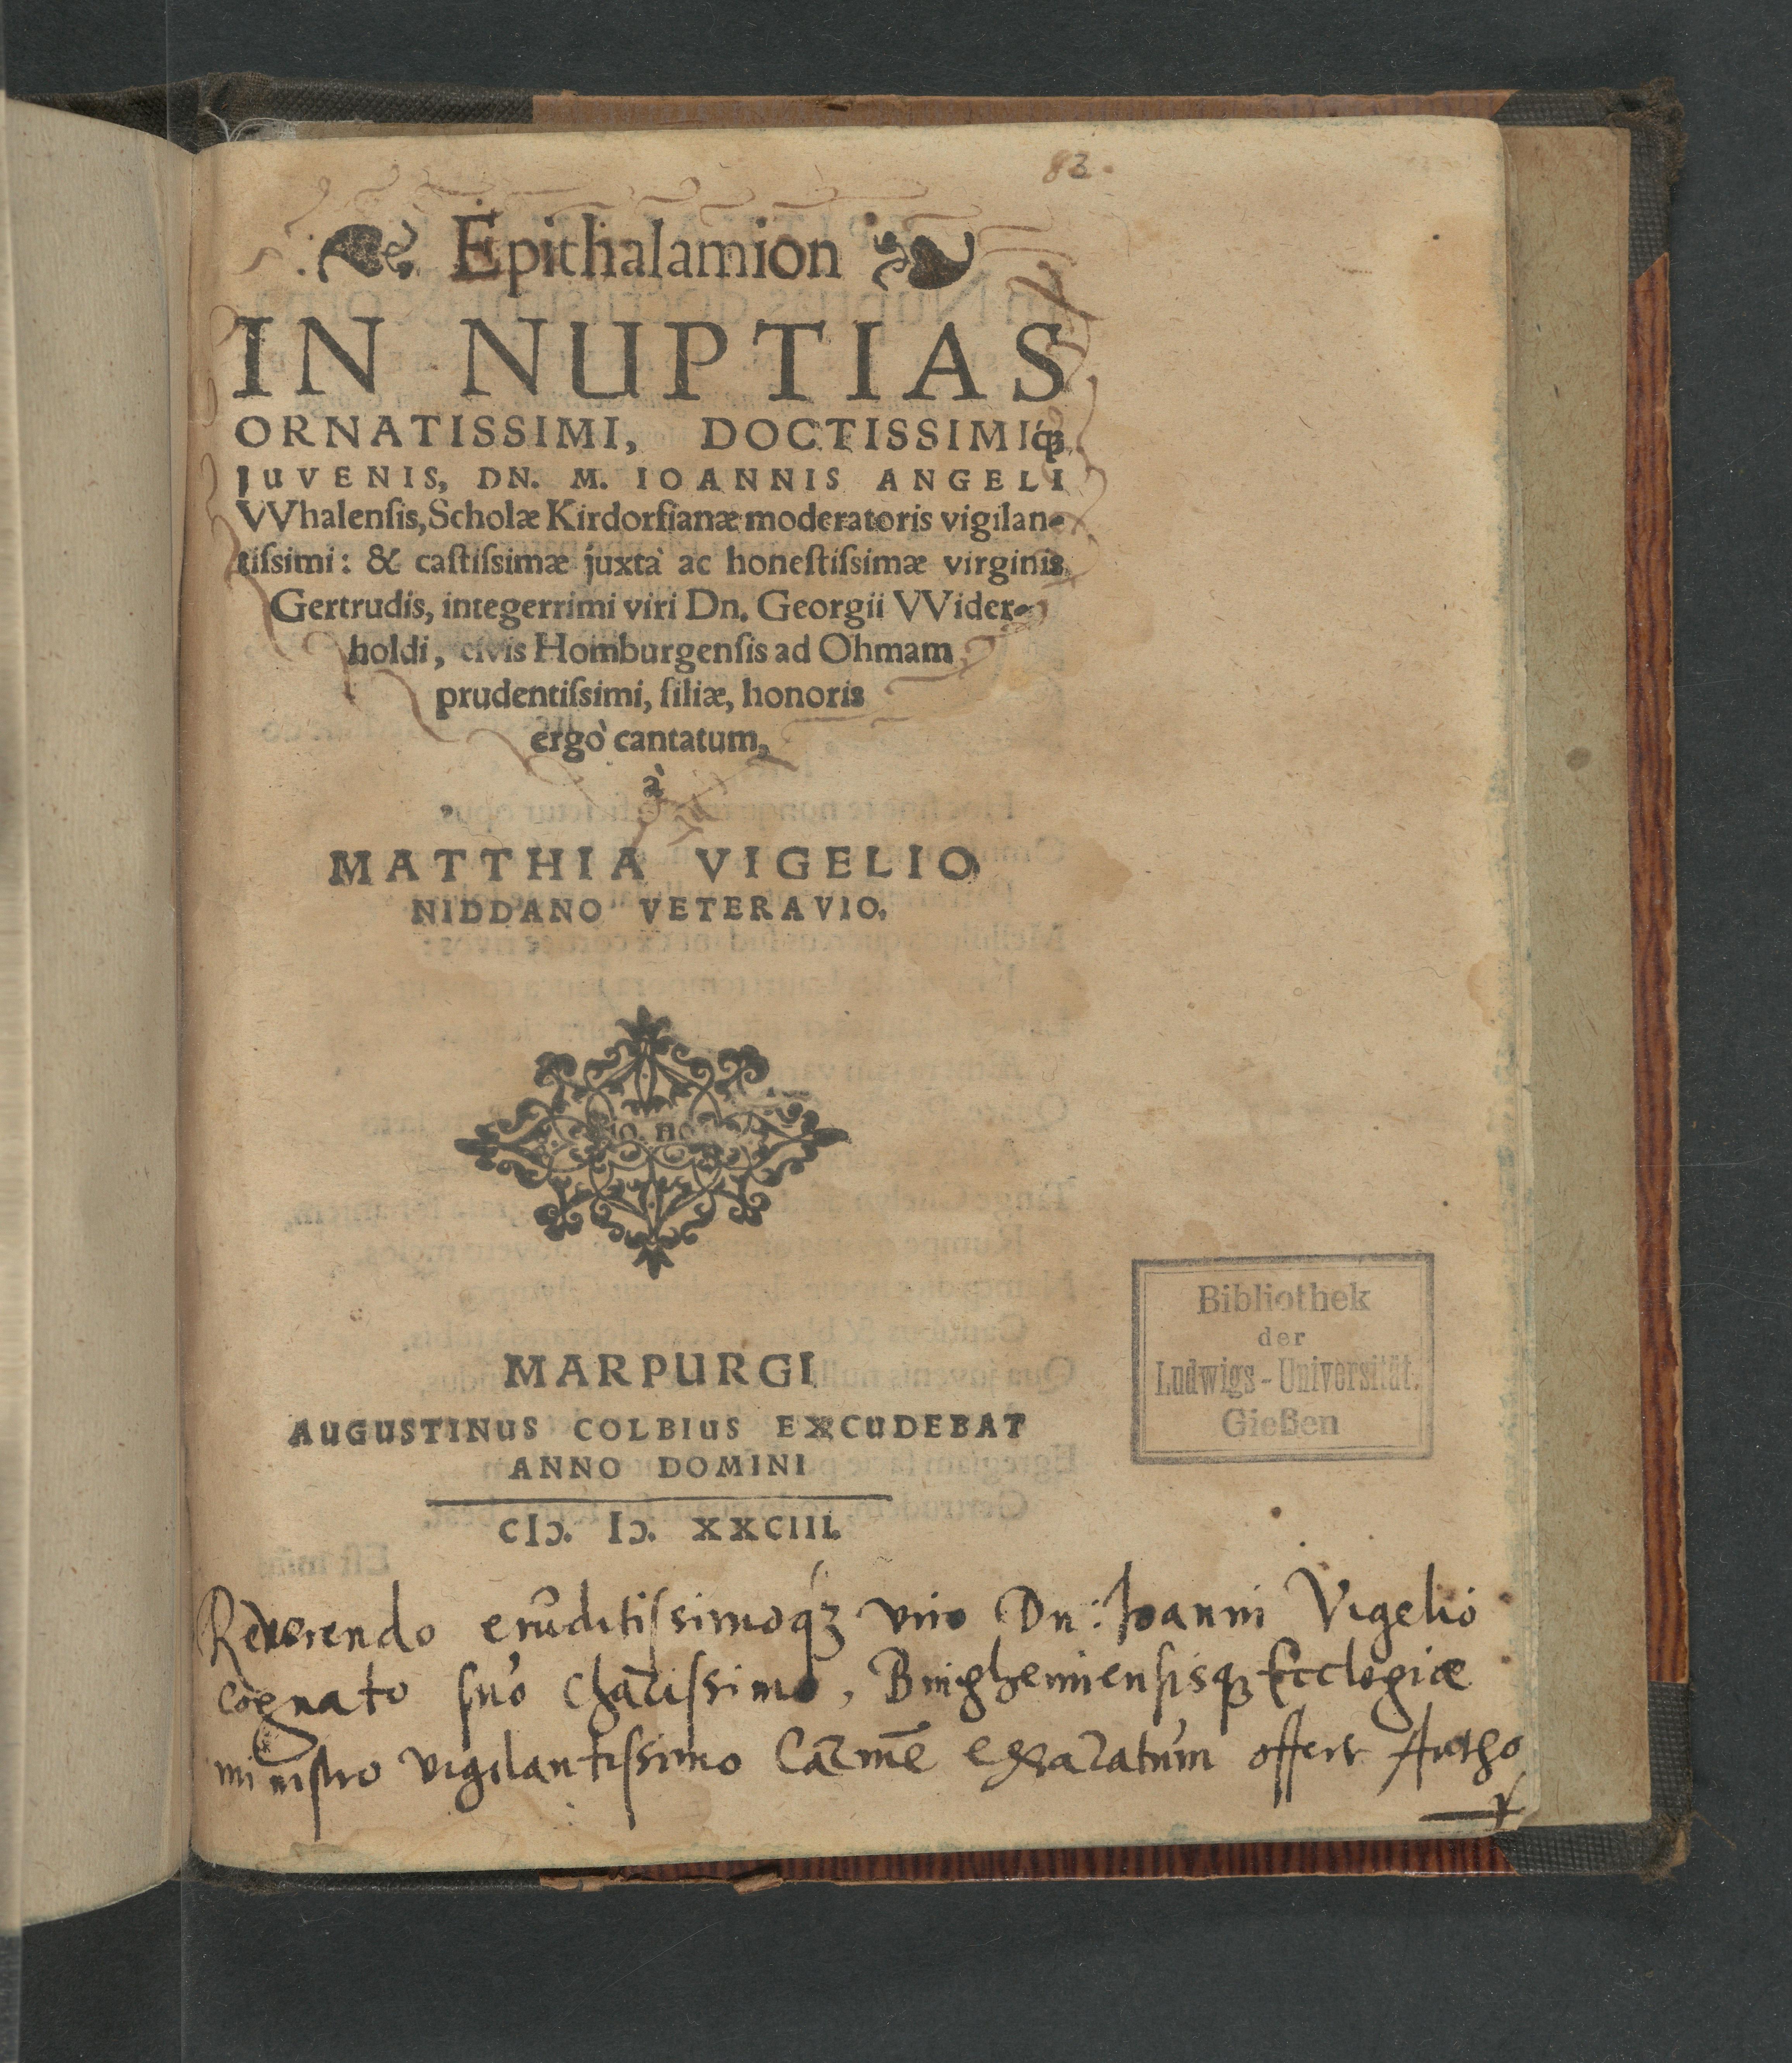 83.
Epithalamion
IN NUPTIAS
ORNATISSIMI, DOCTISSIMIq́ꝫ
JUVENIS, DN. M. IOANNIS ANGELI
VVhalenſis, Scholæ Kirdorfianæ moderatoris vigilan-
tiſsimi: & caſtiſsimæ juxtà ac honeſtiſsimæ virginis
Gertrudis, integerrimi viri Dn. Georgii VVider-
holdi, civis Homburgenſis ad Ohmam
prudentiſsimi, filiæ, honoris
ergò cantatum,
à
MATTHIA VIGELIO
NIDDANO VETERAVIO.
MARPURGI
AUGUSTINUS COLBIUS EXCUDEBAT
ANNO DOMINI
CIↃ. IↃ. XXCIIII.
Bibliothek
der
Ludwigs-Universität.
Gießen
Reverendo eruditiſsimoq́ꝫ viro Dn: Ioanni Vigelio
cognato ſuo clariſsimo, Bingheimenſisqꝫ Eccleſiæ
miniſtro vigilantiſsimo Carmē exaratum offert Autho
r